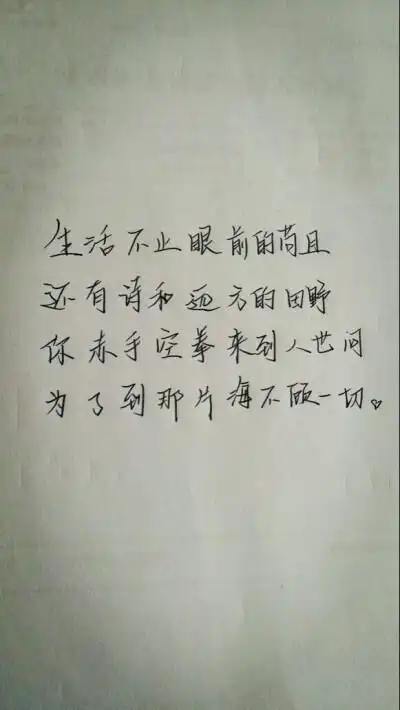 生活不止眼前的苟且
还有诗和远方的田野
你赤手空拳来到人世间
为了到那片海不顾一切。